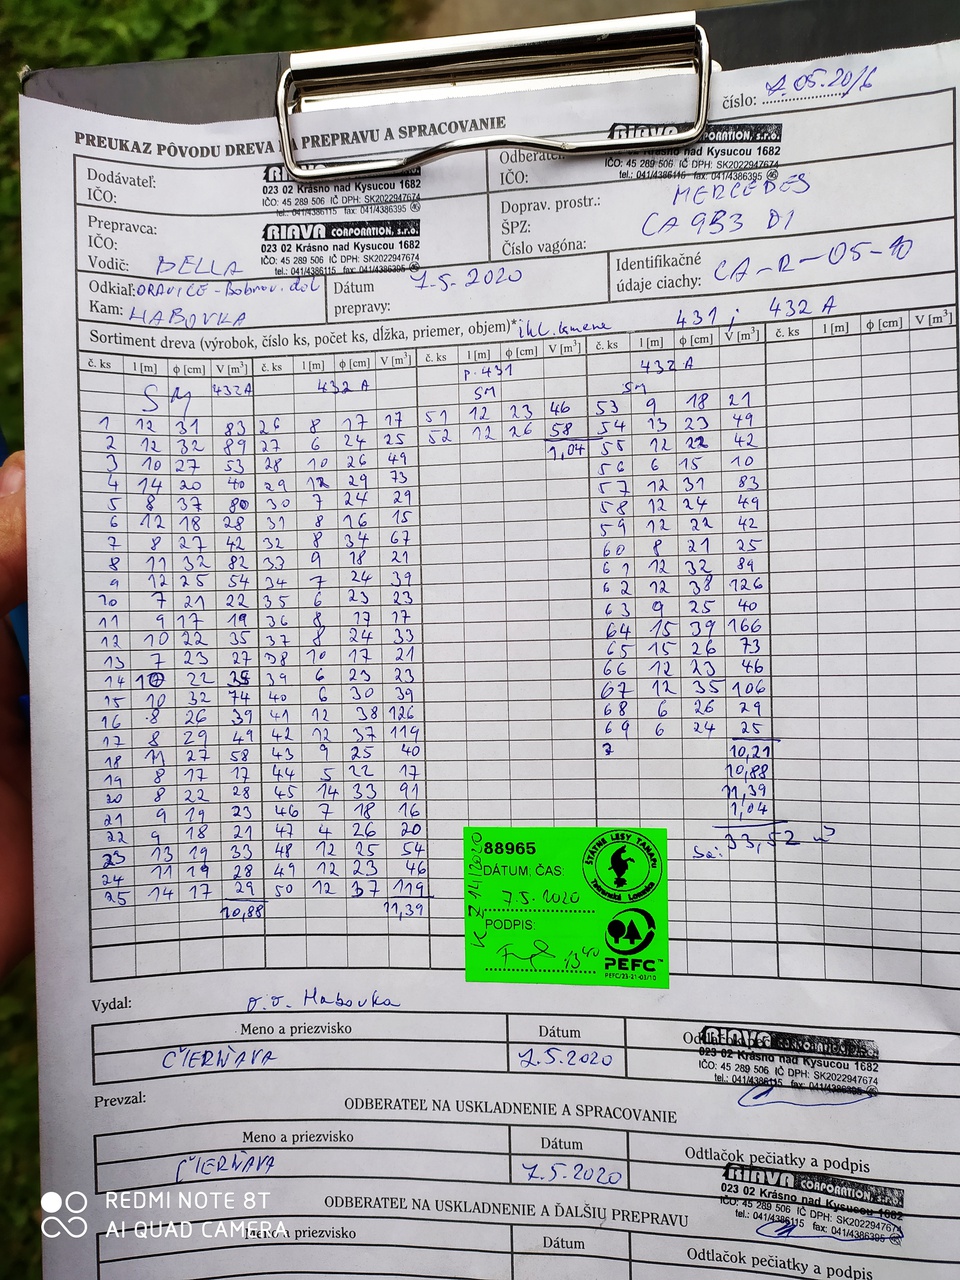 číslo: 7.05.20/6
PREUKAZ PÔVODU DREVA NA PREPRAVU A SPRACOVANIE
Dodávateľ:
IČO:
023 02 Krásno nad Kysucou 1682
IČO: 45 289 506 IČ DPH: SK2022947674
tel.: 041/4386115 fax: 041/4386395
Odberateľ
IČO:
RIAVA CORPORATION, s.r.o.
023 02 Krásno nad Kysucou 1682
IČO: 45 289 506 IČ DPH: SK2022947674
tel.: 041/4386115 fax: 041/4386395
Prepravca:
IČO:
Vodič: BELLA
RIAVA CORPORATION, s.r.o.
023 02 Krásno nad Kysucou 1682
IČO: 45 289 506 IČ DPH: SK2022947674
tel.: 041/4386115 fax: 041/4386395
Doprav. prostr.: MERCEDES
ŠPZ: CA 9B3 DI
Číslo vagóna:
Odkiaľ: ORAVICE - Bobrov. dol
Kam: HABOVKA
Dátum prepravy: 7.5.2020
Identifikačné údaje ciachy: CA-R-05-10
Sortiment dreva (výrobok, číslo ks, počet ks, dĺžka, priemer, objem)* ihl. kmene 431 ; 432 A
č. ks l [m] ϕ [cm] V [m³] č. ks l [m] ϕ [cm] V [m³] č. ks l [m] ϕ [cm] V [m³] č. ks l [m] ϕ [cm] V [m³] č. ks l [m] ϕ [cm] V [m³]
SM 432A 432 A p. 431 432 A
SM SM
1 12 31 83 26 8 17 17 51 12 23 46 53 9 18 21
2 12 32 89 27 6 24 25 52 12 26 58 54 13 23 49
3 10 27 53 28 10 26 49 1,04 55 12 22 42
4 14 20 40 29 12 29 73 56 6 15 10
5 8 37 80 30 7 24 29 57 12 31 83
6 12 18 28 31 8 16 15 58 12 24 49
7 8 27 42 32 8 34 67 59 12 22 42
8 11 32 82 33 9 18 21 60 8 21 25
9 12 25 54 34 7 24 39 61 12 32 89
10 7 21 22 35 6 23 23 62 12 38 126
11 9 17 19 36 8 17 17 63 9 25 40
12 10 22 35 37 8 24 33 64 15 39 166
13 7 23 27 38 10 17 21 65 15 26 73
14 10 22 35 39 6 23 23 66 12 23 46
15 10 32 74 40 6 30 39 67 12 35 106
16 8 26 39 41 12 38 126 68 6 26 29
17 8 29 49 42 12 37 119 69 6 24 25
18 11 27 58 43 9 25 40 7 10,21
19 8 17 17 44 5 22 17 10,88
20 8 22 28 45 14 33 91 11,39
21 9 19 23 46 7 18 16 1,04
22 9 18 21 47 4 26 20 Sa: 33,52 m³
23 13 19 33 48 12 25 54
24 11 19 28 49 12 23 46
25 14 17 29 50 12 37 119
10,88 11,39
88965
DÁTUM, ČAS:
7.5.2020
PODPIS:
13 40
K Z 14/2020
ŠTÁTNE LESY TANAPU
Tatranská Lomnica
PEFC™
PEFC/23-21-03/10
Vydal: o.o. Habovka
Meno a priezvisko Dátum Odtlačok pečiatky
ČIERŇAVA 7.5.2020
RIAVA CORPORATION, s.r.o.
023 02 Krásno nad Kysucou 1682
IČO: 45 289 506 IČ DPH: SK2022947674
tel.: 041/4386115 fax: 041/4386395
Prevzal:
ODBERATEĽ NA USKLADNENIE A SPRACOVANIE
Meno a priezvisko Dátum Odtlačok pečiatky a podpis
ČIERŇAVA 7.5.2020
RIAVA CORPORATION, s.r.o.
023 02 Krásno nad Kysucou 1682
IČO: 45 289 506 IČ DPH: SK2022947674
tel.: 041/4386115 fax: 041/4386395
ODBERATEĽ NA USKLADNENIE A ĎALŠIU PREPRAVU
Meno a priezvisko Dátum Odtlačok pečiatky a podpis
REDMI NOTE 8T
AI QUAD CAMERA